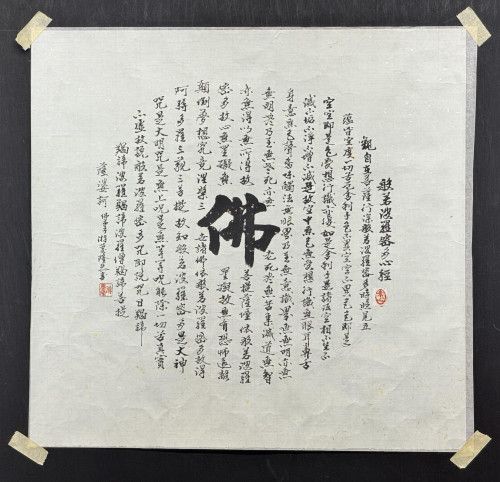 般若波羅蜜多心經
觀自在菩薩行深般若波羅蜜多時照見五
蘊皆空度一切苦厄舍利子色不異空空不異色色即是
空空即是色受想行識亦復如是舍利子是諸法空相不生不
滅不垢不淨不增不減是故空中無色無受想行識無眼耳鼻舌
身意無色聲香味觸法無眼界乃至無意識界無無明亦無
無明盡乃至無老死亦無老死盡無苦集滅道無智
亦無得以無所得故菩提薩埵依般若波羅
蜜多故心無罣礙無罣礙故無有恐怖遠離
佛
顛倒夢想究竟涅槃三世諸佛依般若波羅蜜多故得
阿耨多羅三藐三菩提故知般若波羅蜜多是大神
咒是大明咒是無上咒是無等等咒能除一切苦真實
不虛故說般若波羅蜜多咒即說咒曰揭諦
揭諦波羅揭諦波羅僧揭諦菩提
薩婆訶 佛弟子